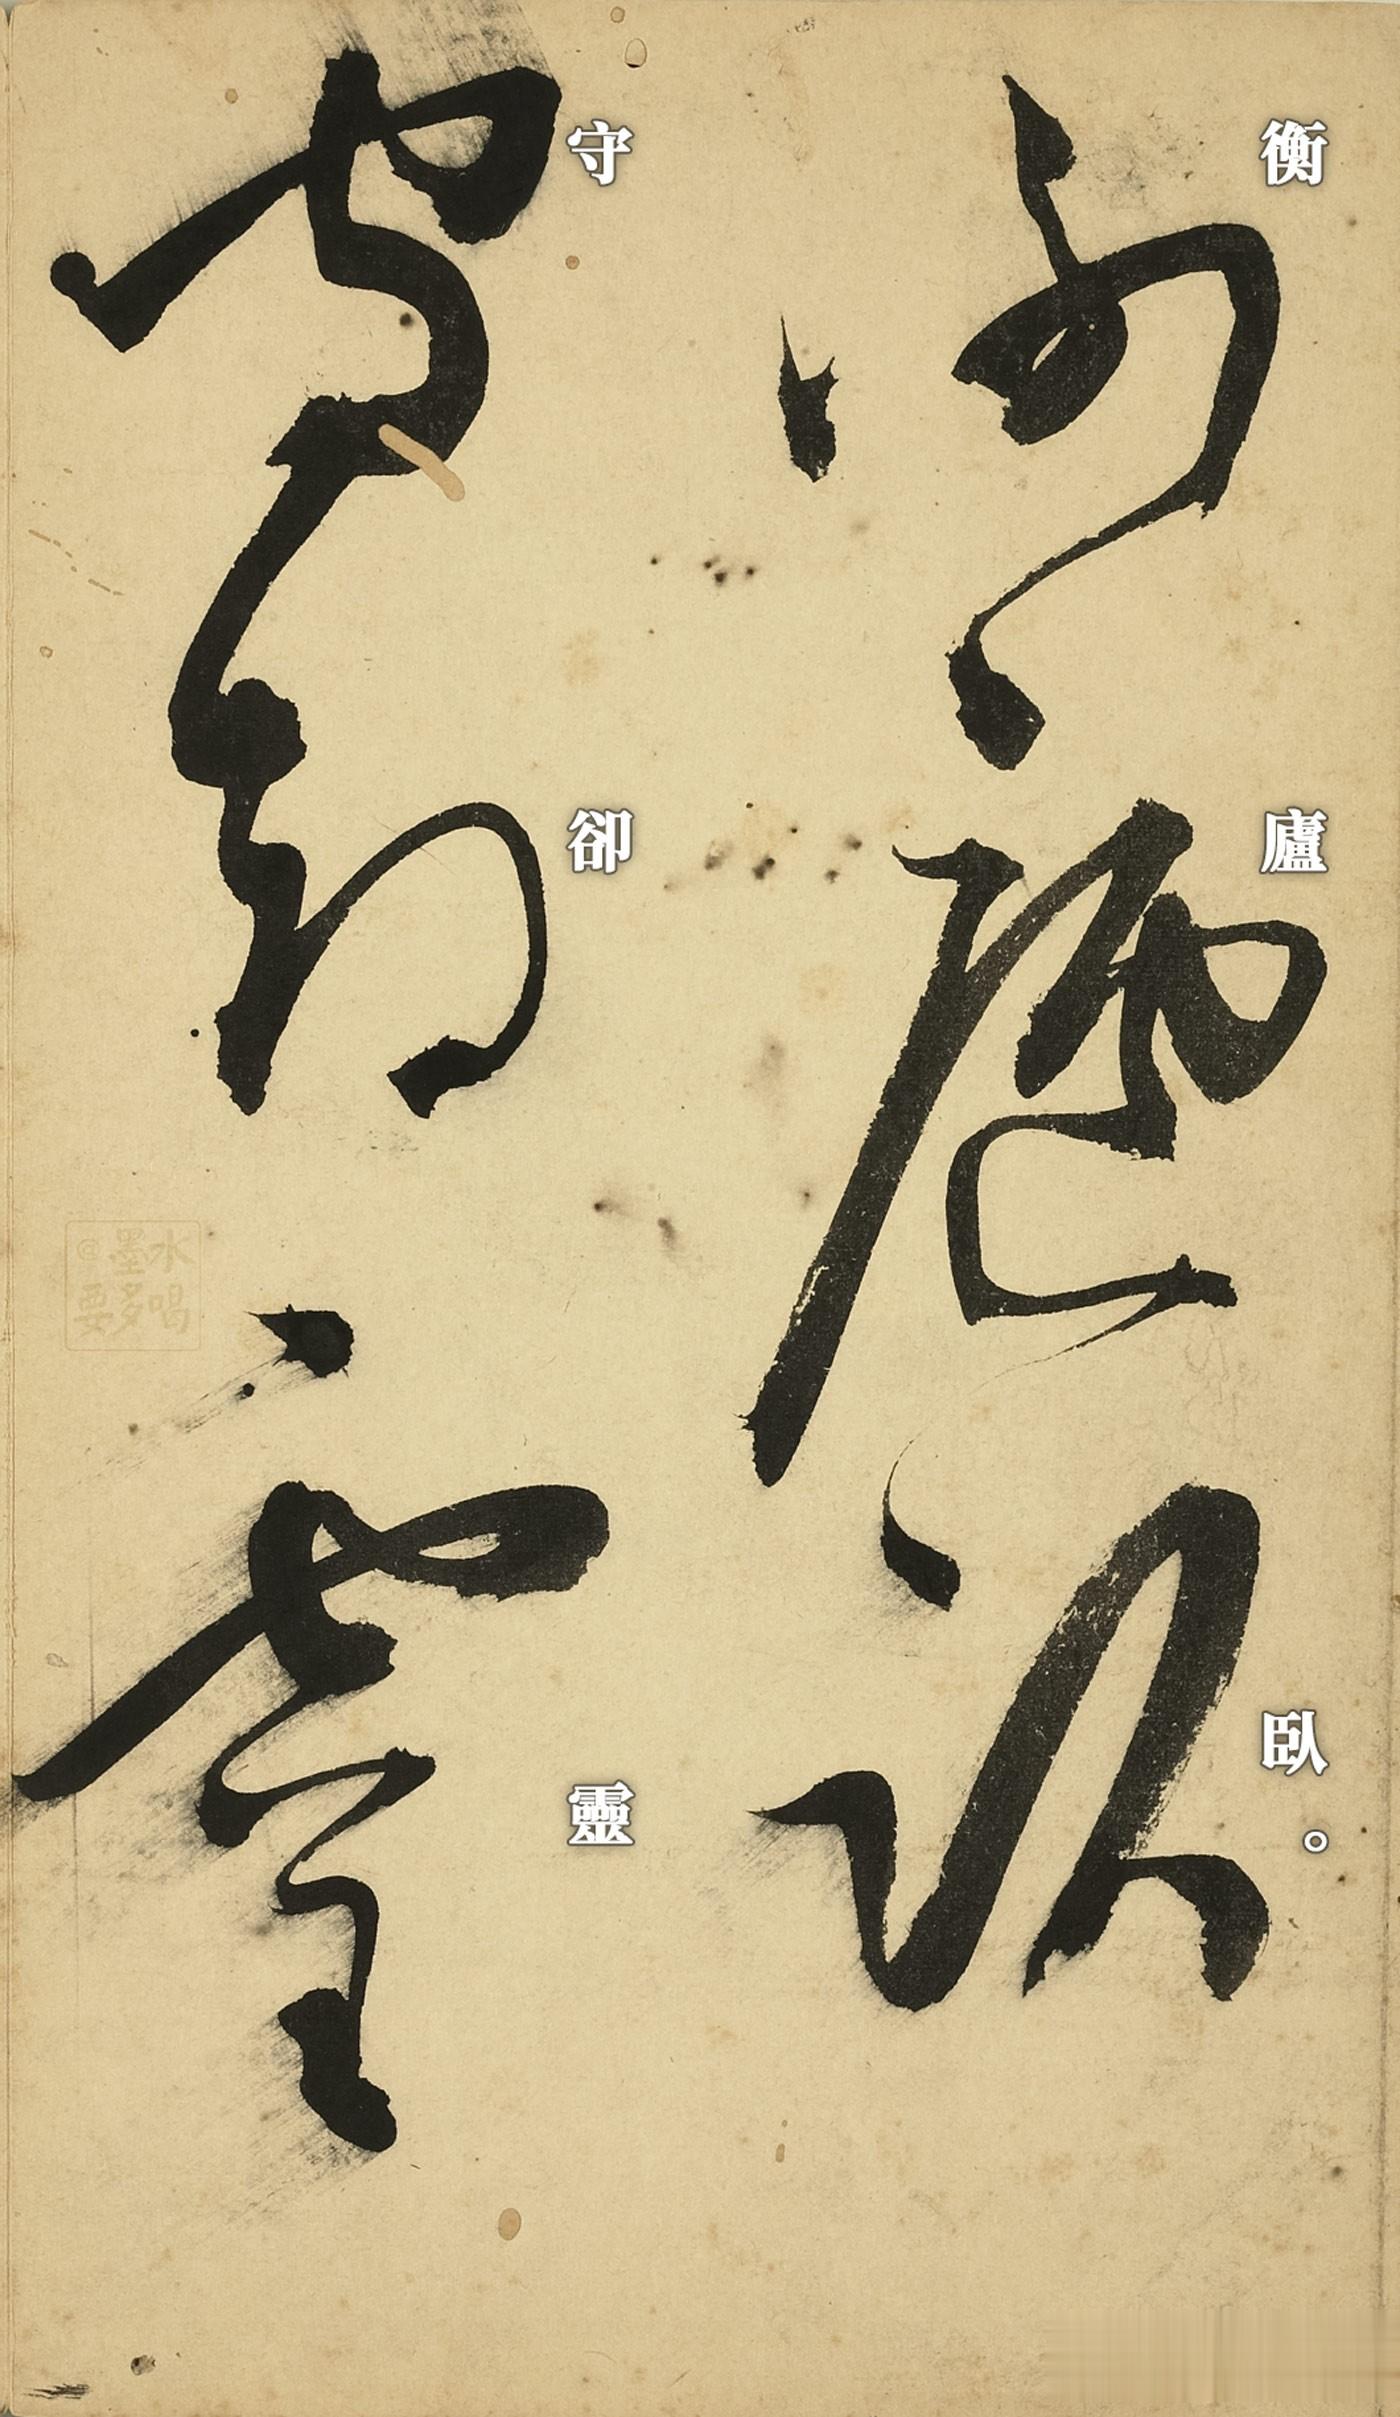 衡廬臥。
守卻靈
@墨水
要多喝